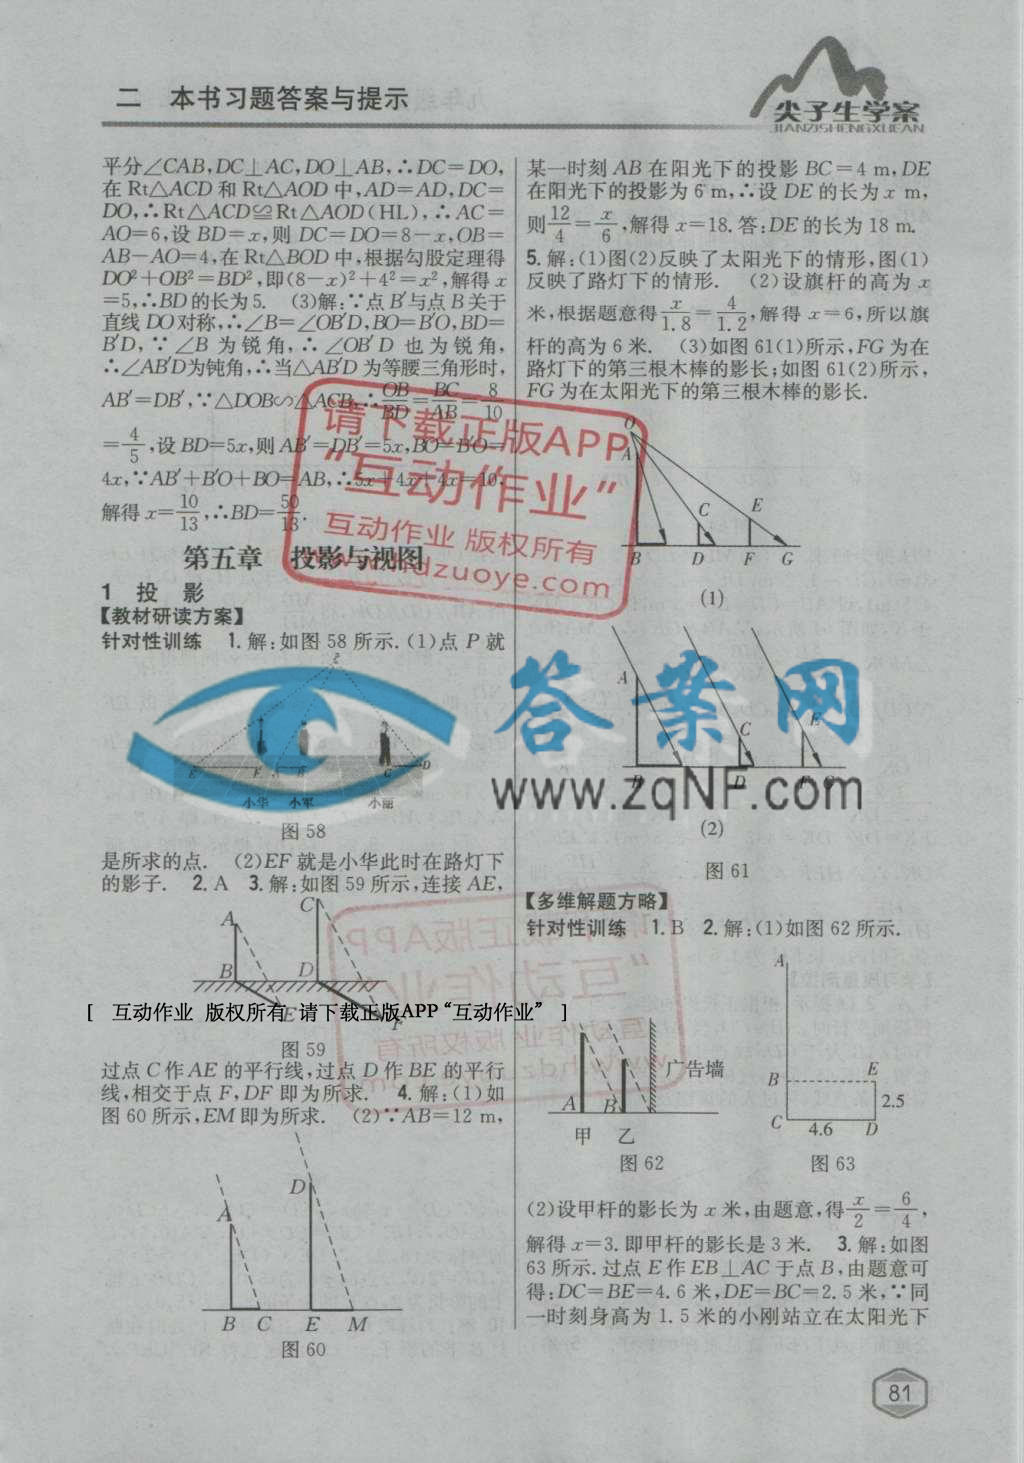 二 本书习题答案与提示
尖子生学案
JIANZISHENGXUEAN
平分∠CAB,DC⊥AC,DO⊥AB,∴DC=DO,
在 Rt△ACD 和 Rt△AOD 中,AD=AD,DC=
DO,∴Rt△ACD≌Rt△AOD(HL),∴AC=
AO=6,设 BD=x,则 DC=DO=8-x,OB=
AB-AO=4,在 Rt△BOD 中,根据勾股定理得
DO²+OB²=BD²,即(8-x)²+4²=x²,解得 x
=5,∴BD的长为5. (3)解:∵点B′与点B关于
直线DO对称,∴∠B=∠OB′D,BO=B′O,BD=
B′D,∵∠B 为锐角,∴∠OB′D 也为锐角,
∴∠AB′D为钝角,∴当△AB′D 为等腰三角形时,
AB′=DB′,∵△DOB∽△ACB,∴OB/BD=BC/AB=8/10
=4/5,设 BD=5x,则 AB′=DB′=5x,BO=B′O=
4x,∵AB′+B′O+BO=AB,∴5x+4x+4x=10,
解得 x=10/13,∴BD=50/13.
第五章 投影与视图
1 投 影
【教材研读方案】
针对性训练 1.解:如图 58 所示.(1)点 P 就
E F A B C D
小华 小军 小丽
图 58
是所求的点. (2)EF 就是小华此时在路灯下
的影子. 2.A 3.解:如图 59 所示,连接 AE,
A B C D E F
[ 互动作业 版权所有 请下载正版APP“互动作业” ]
图 59
过点 C 作 AE 的平行线,过点 D 作 BE 的平行
线,相交于点 F,DF 即为所求. 4.解:(1)如
图 60 所示,EM 即为所求. (2)∵AB=12 m,
D
A
B C E M
图 60
某一时刻 AB 在阳光下的投影 BC=4 m,DE
在阳光下的投影为 6 m,∴设 DE 的长为 x m,
则12/4=x/6,解得 x=18.答:DE 的长为 18 m.
5.解:(1)图(2)反映了太阳光下的情形,图(1)
反映了路灯下的情形. (2)设旗杆的高为 x
米,根据题意得x/1.8=4/1.2,解得 x=6,所以旗
杆的高为 6 米. (3)如图 61(1)所示,FG 为在
路灯下的第三根木棒的影长;如图 61(2)所示,
FG 为在太阳光下的第三根木棒的影长.
O
A
C E
B D F G
(1)
A
C
E
B D F G
(2)
图 61
【多维解题方略】
针对性训练 1.B 2.解:(1)如图 62 所示.
广告墙
A B
甲 乙
图 62
A
B E
2.5
C 4.6 D
图 63
(2)设甲杆的影长为 x 米,由题意,得x/2=6/4,
解得 x=3.即甲杆的影长是 3 米. 3.解:如图
63 所示.过点 E 作 EB⊥AC 于点 B,由题意可
得:DC=BE=4.6 米,DE=BC=2.5 米,∵同
一时刻身高为 1.5 米的小刚站立在太阳光下
81
请下载正版APP
“互动作业”
互动作业 版权所有
www.hdzuoye.com
答案网
www.zqNF.com